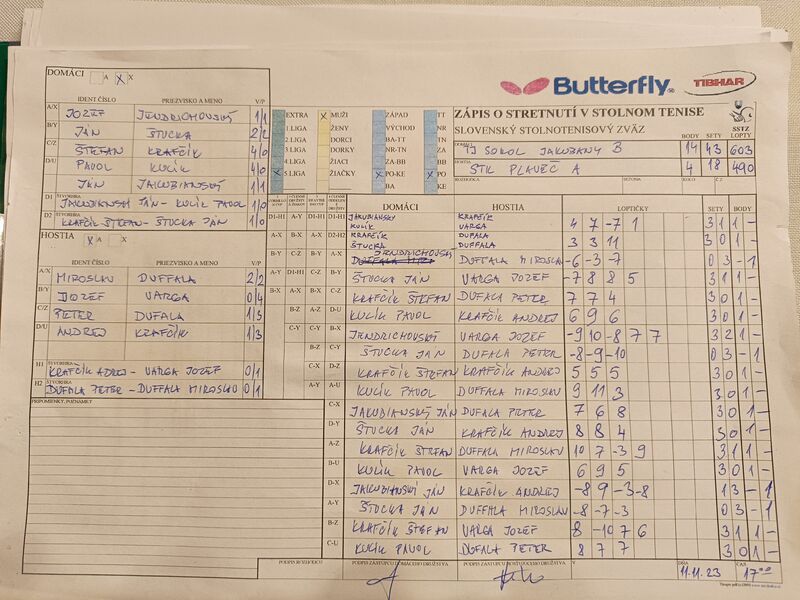 DOMÁCI A X X
IDENT ČÍSLO PRIEZVISKO A MENO V/P
A/X JOZEF JENDRICHOVSKÝ 1/1
B/Y JÁN ŠTUCKA 2/2
C/Z ŠTEFAN KRAFČÍK 4/0
D/U PAVOL KULÍK 4/0
JÁN JAKUBIANSKÝ 1/1
D1 ŠTVORHRA
JAKUBIANSKÝ JÁN - KULÍK PAVOL 1/0
D2 ŠTVORHRA
KRAFČÍK ŠTEFAN - ŠTUCKA JÁN 1/0
HOSTIA X A X
IDENT ČÍSLO PRIEZVISKO A MENO V/P
A/X MIROSLAV DUFFALA 2/2
B/Y JOZEF VARGA 0/4
C/Z PETER DUFALA 1/3
D/U ANDREJ KRAFČÍK 1/3
H1 ŠTVORHRA
KRAFČÍK ADREJ - VARGA JOZEF 0/1
H2 ŠTVORHRA
DUFALA PETER - DUFFALA MIROSLAV 0/1
PRIPOMIENKY, POZNÁMKY
Butterfly
TIBHAR
EXTRA X MUŽI ZÁPAD TT
1 LIGA ŽENY VÝCHOD NR
2 LIGA DORCI BA-TT TN
3 LIGA DORKY NR-TN ZA
4 LIGA ŽIACI ZA-BB BB
X 5 LIGA ŽIAČKY X PO-KE X PO
BA KE
ZÁPIS O STRETNUTÍ V STOLNOM TENISE
SLOVENSKÝ STOLNOTENISOVÝ ZVÄZ
SSTZ
BODY SETY LOPTY
TJ SOKOL JAKUBANY B 14 43 603
HOSTIA
STK PLAVEČ A 4 18 490
ROZHODCA SEZÓNA KOLO Č.Z
DOMÁCI HOSTIA LOPTIČKY SETY BODY
JAKUBIANSKY KRAFČÍK
KULÍK VARGA 4 7 -7 1 3 1 1 -
KRAFČÍK DUFALA
ŠTUCKA DUFFALA 3 3 11 3 0 1 -
JENDRICHOVSKÝ DUFFALA MIROSLAV -6 -3 -7 0 3 - 1
ŠTUCKA JÁN VARGA JOZEF -7 8 8 5 3 1 1 -
KRAFČÍK ŠTEFAN DUFALA PETER 7 7 4 3 0 1 -
KULÍK PAVOL KRAFČÍK ANDREJ 6 9 6 3 0 1 -
JENDRICHOVSKÝ VARGA JOZEF -9 10 -8 7 7 3 2 1 -
ŠTUCKA JÁN DUFALA PETER -8 -9 -10 0 3 - 1
KRAFČÍK ŠTEFAN KRAFČÍK ANDREJ 5 5 5 3 0 1 -
KULÍK PAVOL DUFFALA MIROSLAV 9 11 3 3 0 1 -
C-X JAKUBIANSKÝ JÁN DUFALA PETER 7 6 8 3 0 1 -
D-Y ŠTUCKA JÁN KRAFČÍK ANDREJ 8 8 4 3 0 1 -
A-Z KRAFČÍK ŠTEFAN DUFFALA MIROSLAV 10 7 -3 9 3 1 1 -
B-U KULÍK PAVOL VARGA JOZEF 6 9 5 3 0 1 -
D-X JAKUBIANSKÝ JÁN KRAFČÍK ANDREJ -8 9 -3 -8 1 3 - 1
A-Y ŠTUCKA JÁN DUFFALA MIROSLAV -8 -7 -3 0 3 - 1
B-Z KRAFČÍK ŠTEFAN VARGA JOZEF 8 -10 7 6 3 1 1 -
C-U KULÍK PAVOL DUFALA PETER 8 7 7 3 0 1 -
PODPIS ROZHODCU PODPIS ZÁSTUPCU DOMÁCEHO DRUŽSTVA PODPIS ZÁSTUPCU HOSŤUJÚCEHO DRUŽSTVA V DŇA ČAS
11.11.23 17°°